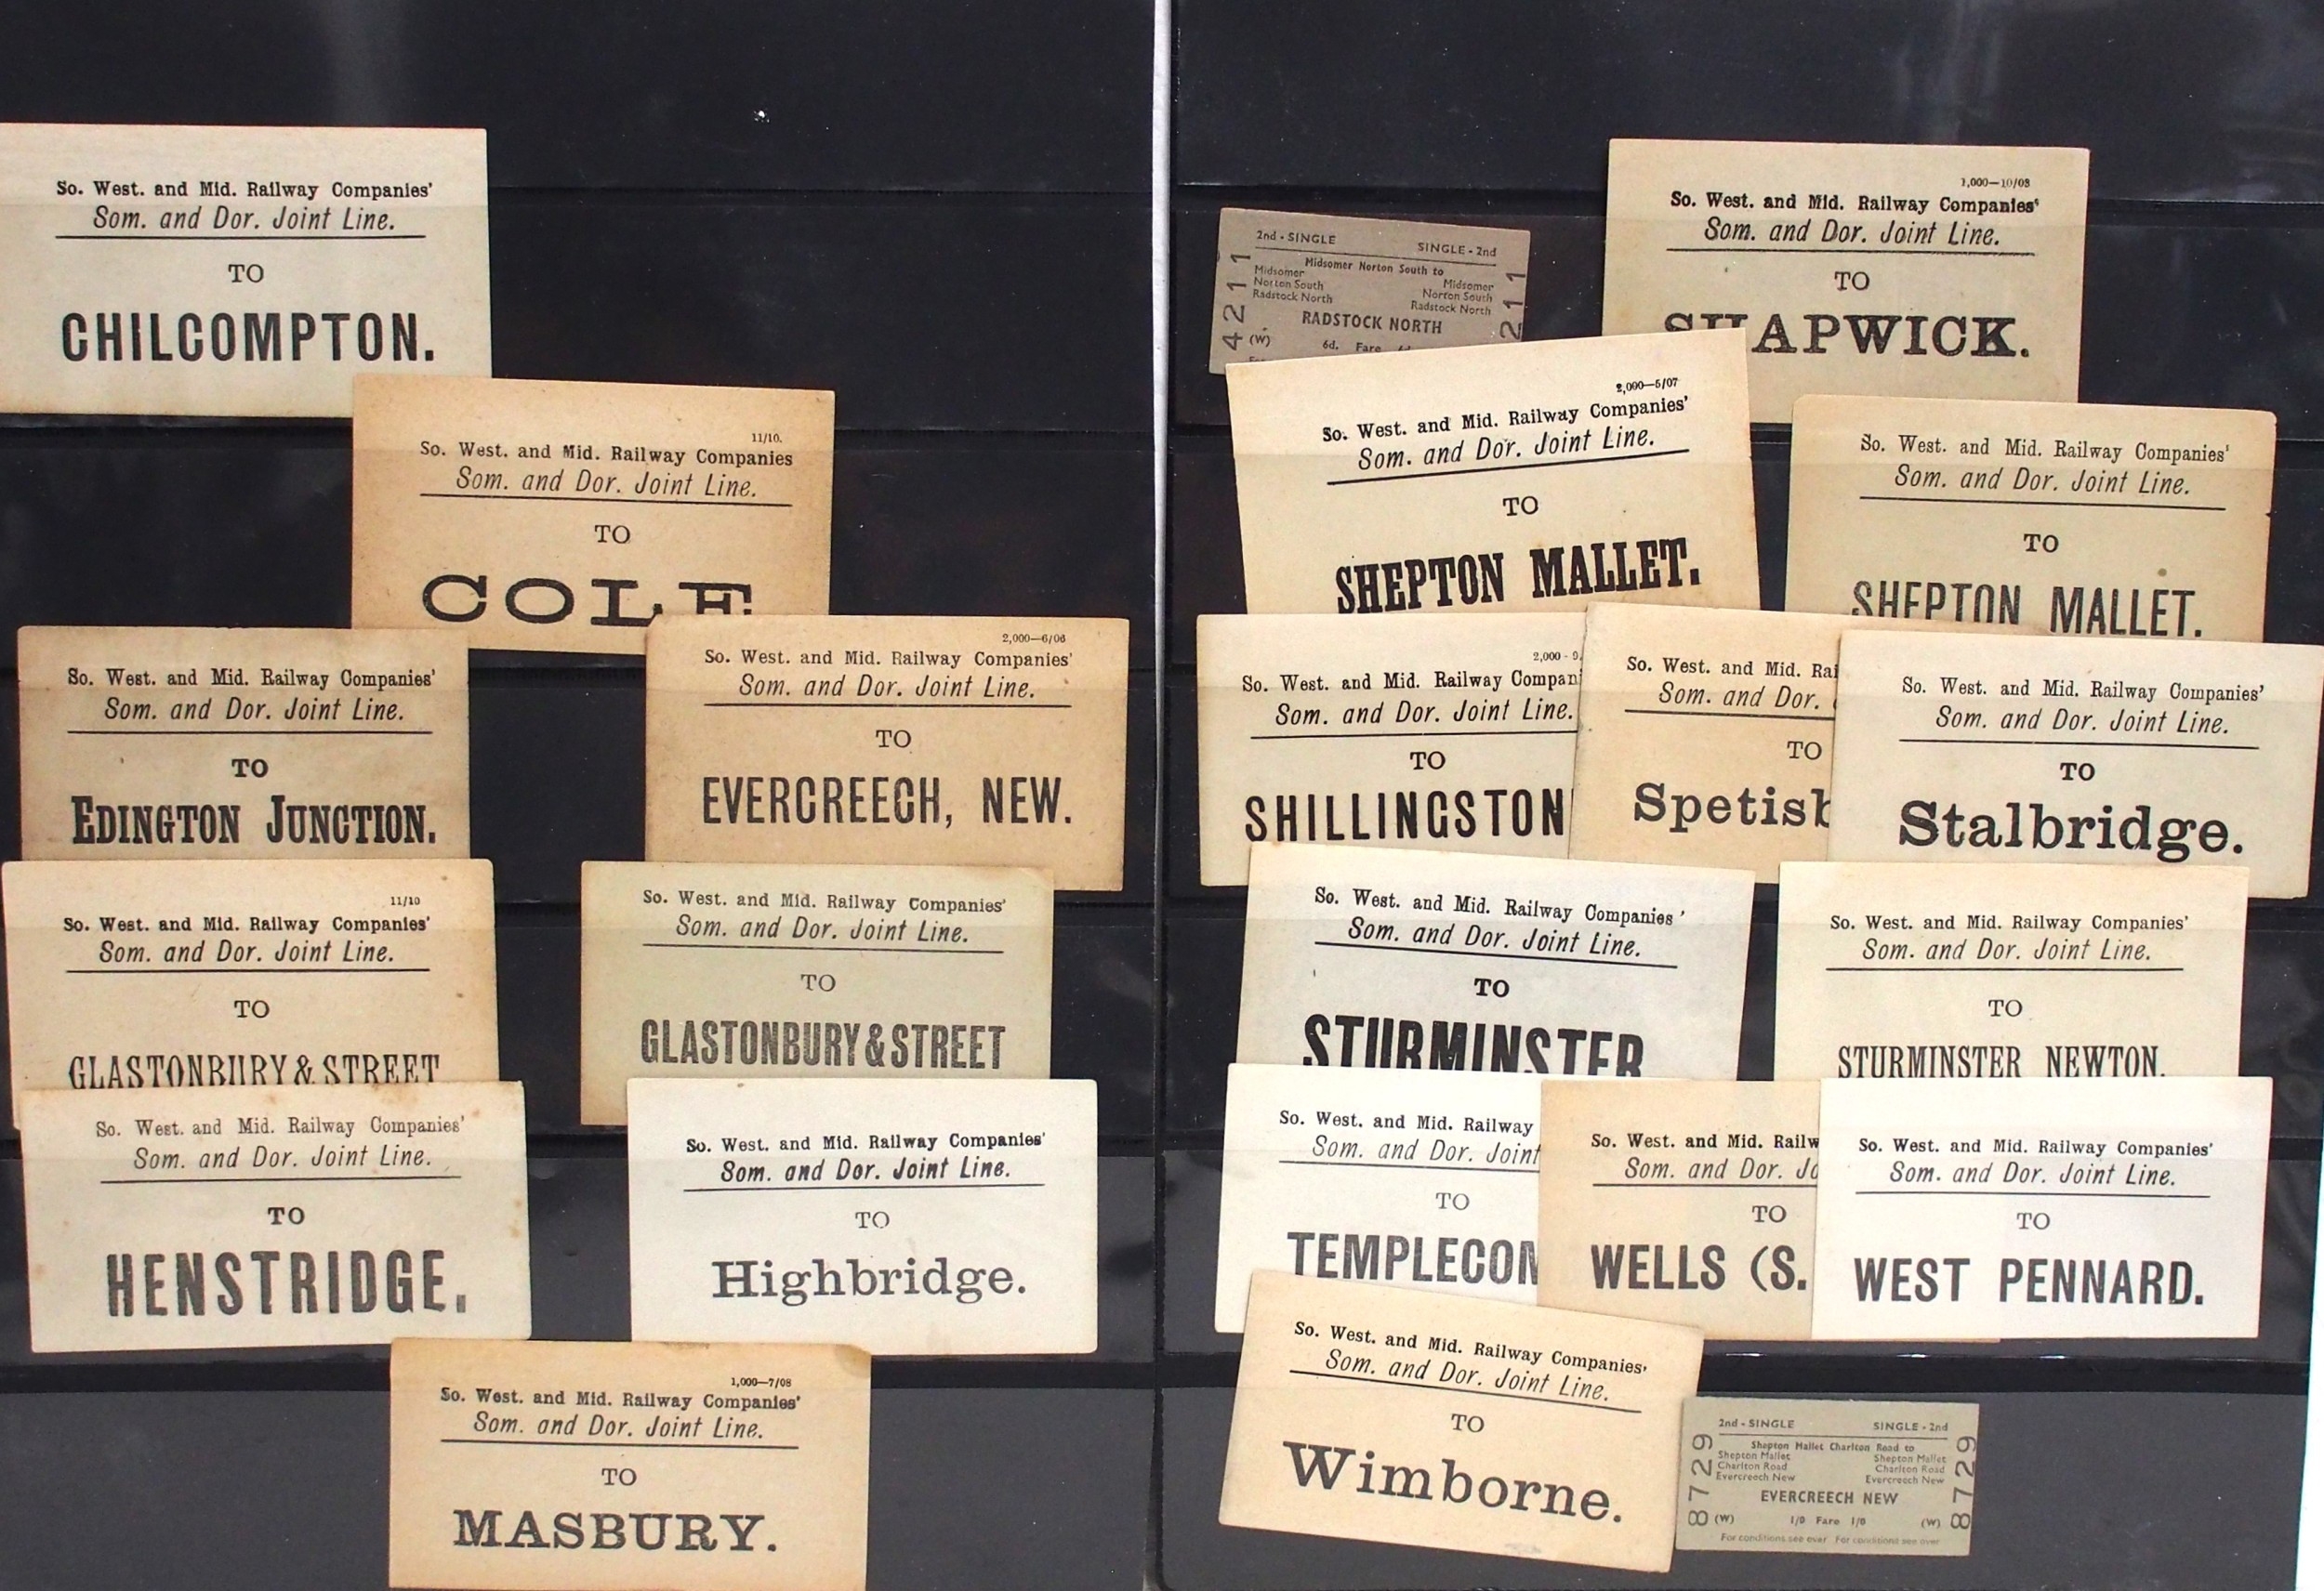 So. West. and Mid. Railway Companies'
Som. and Dor. Joint Line.
TO
CHILCOMPTON.
11/10.
So. West. and Mid. Railway Companies
Som. and Dor. Joint Line.
TO
COLE
So. West. and Mid. Railway Companies'
Som. and Dor. Joint Line.
TO
EDINGTON JUNCTION.
2,000—6/06
So. West. and Mid. Railway Companies'
Som. and Dor. Joint Line.
TO
EVERCREECH, NEW.
11/10
So. West. and Mid. Railway Companies'
Som. and Dor. Joint Line.
TO
GLASTONBURY & STREET
So. West. and Mid. Railway Companies'
Som. and Dor. Joint Line.
TO
GLASTONBURY & STREET
So. West. and Mid. Railway Companies'
Som. and Dor. Joint Line.
TO
HENSTRIDGE.
So. West. and Mid. Railway Companies'
Som. and Dor. Joint Line.
TO
Highbridge.
1,000—7/08
So. West. and Mid. Railway Companies'
Som. and Dor. Joint Line.
TO
MASBURY.
2nd - SINGLE SINGLE - 2nd
Midsomer Norton South to
Midsomer Midsomer
Norton South Norton South
Radstock North Radstock North
RADSTOCK NORTH
(W) 6d. Fare
4211 211
1,000—10/08
So. West. and Mid. Railway Companies'
Som. and Dor. Joint Line.
TO
SHAPWICK.
2,000—5/07
So. West. and Mid. Railway Companies'
Som. and Dor. Joint Line.
TO
SHEPTON MALLET.
So. West. and Mid. Railway Companies'
Som. and Dor. Joint Line.
TO
SHEPTON MALLET.
2,000 - 9
So. West. and Mid. Railway Compan
Som. and Dor. Joint Line.
TO
SHILLINGSTON
So. West. and Mid. Rai
Som. and Dor.
TO
Spetisb
So. West. and Mid. Railway Companies'
Som. and Dor. Joint Line.
TO
Stalbridge.
So. West. and Mid. Railway Companies'
Som. and Dor. Joint Line.
TO
STURMINSTER
So. West. and Mid. Railway Companies'
Som. and Dor. Joint Line.
TO
STURMINSTER NEWTON.
So. West. and Mid. Railway
Som. and Dor. Joint
TO
TEMPLECOM
So. West. and Mid. Railw
Som. and Dor. Jo
TO
WELLS (S.
So. West. and Mid. Railway Companies'
Som. and Dor. Joint Line.
TO
WEST PENNARD.
So. West. and Mid. Railway Companies'
Som. and Dor. Joint Line.
TO
Wimborne.
2nd - SINGLE SINGLE - 2nd
Shepton Mallet Charlton Road to
Shepton Mallet Shepton Mallet
Charlton Road Charlton Road
Evercreech New Evercreech New
EVERCREECH NEW
(W) 1/0 Fare 1/0 (W)
For conditions see over For conditions see over
8729 8729